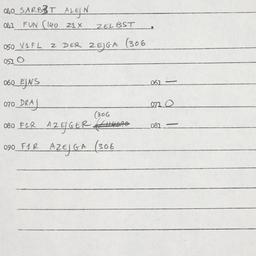 040 SARBƷT ALEJN
041 FUN (140 21X ZELBST .
050 V1FL Z DER ZEJGA (306
051 O
060 EJNS 061 —
070 DRAJ 071 O
(306
080 F1R AZEJGER 081 —
090 F1R AZEJGA (306